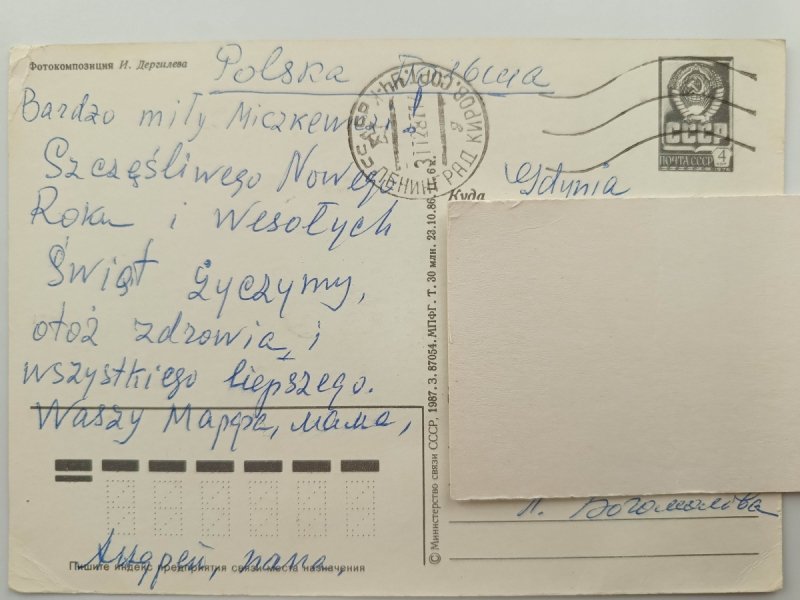 Фотокомпозиция И. Дергилева
Polska Польша
Bardzo miły Miczkewicz!
Szczęśliwego Nowego
Roku i Wesołych
Świąt życzymy,
otoż zdrowia i
wszystkiego liepszego.
Waszy Марфа, мама,
Андрей, папа,
Пишите индекс предприятия связи места назначения
© Министерство связи СССР, 1987. З. 87054. МПФГ. Т. 30 млн. 23.10.86. Ц. 6 к.
ЛЕНИНГРАД КИРОВ. СОРТ.
СССР
ПОЧТА СССР 4
Куда
Gdynia
Л. Богомолова